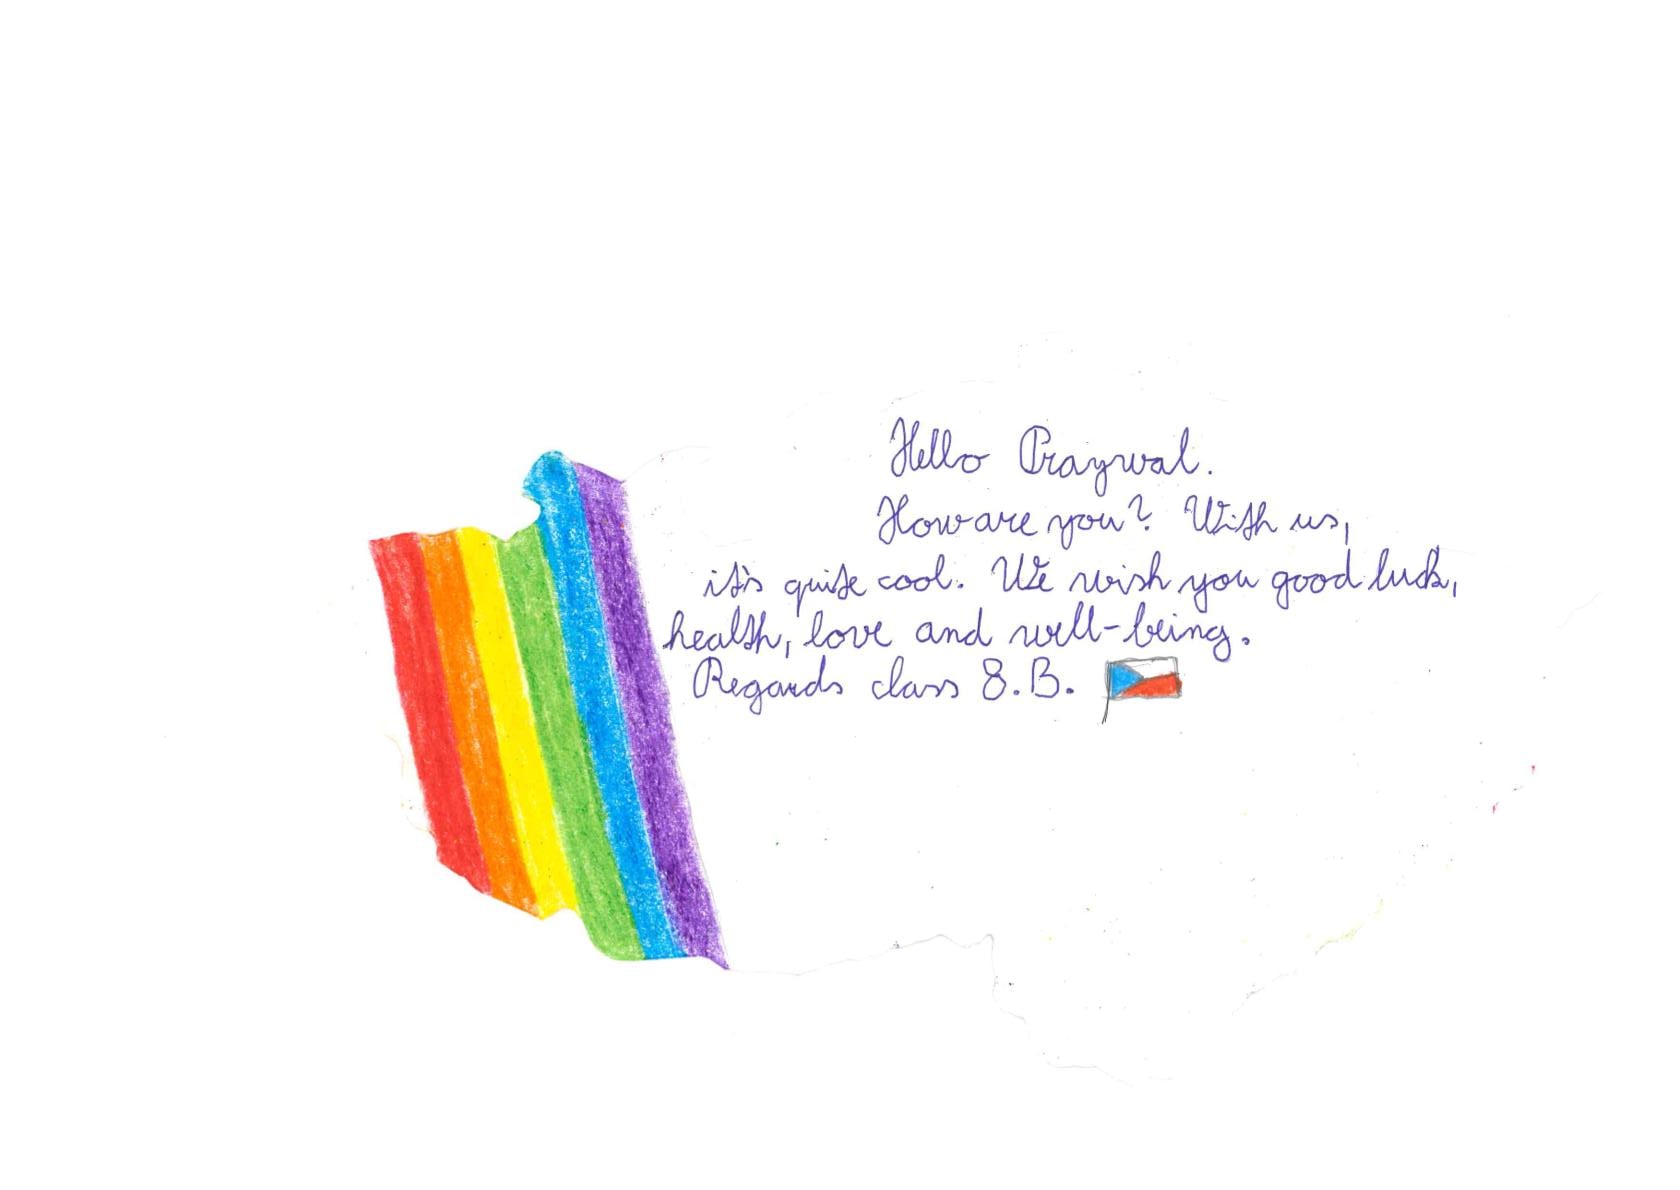 Hello Praywal.
How are you? With us,
it's quite cool. We wish you good luck,
health, love and well-being.
Regards class 8.B.